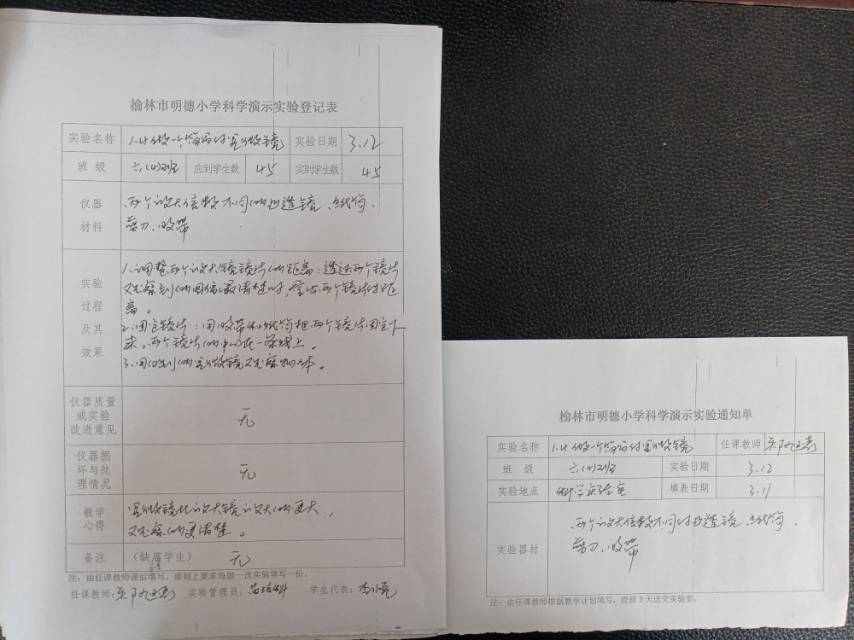 榆林市明德小学科学演示实验登记表
实验名称 1.4做一个简易的显微镜 实验日期 3.12
班 级 六(4)班 应到学生数 45 实到学生数 45
仪器材料 两个放大倍数不同的凸透镜、纸筒、
剪刀、胶带
实验过程及其效果 1.调整两个放大镜镜片的距离:透过两个镜片
观察到的图像最清楚时,镜片的距
离。
2.固定镜片:用胶带和纸筒把两个镜片固定下
来。两个镜片的中心在一条线上。
3.用的显微镜观察物体。
仪器质量或实验改进意见 无
仪器损坏与处理情况 无
教学心得 显微镜比放大镜放大的更大,
观察的更清楚。
备注 (缺席学生) 无
注:由任课教师课后填写,原则上要求每做一次实验填写一份。
任课教师: 实验管理员: 学生代表:
榆林市明德小学科学演示实验通知单
实验名称 1.4做一个简易的显微镜 任课教师
班 级 六(4)班 实验日期 3.12
实验地点 科学实验室 填表日期 3.11
实验器材 两个放大倍数不同的凸透镜、纸筒、
剪刀、胶带
注:由任课教师根据教学计划填写,提前3天送交实验室。